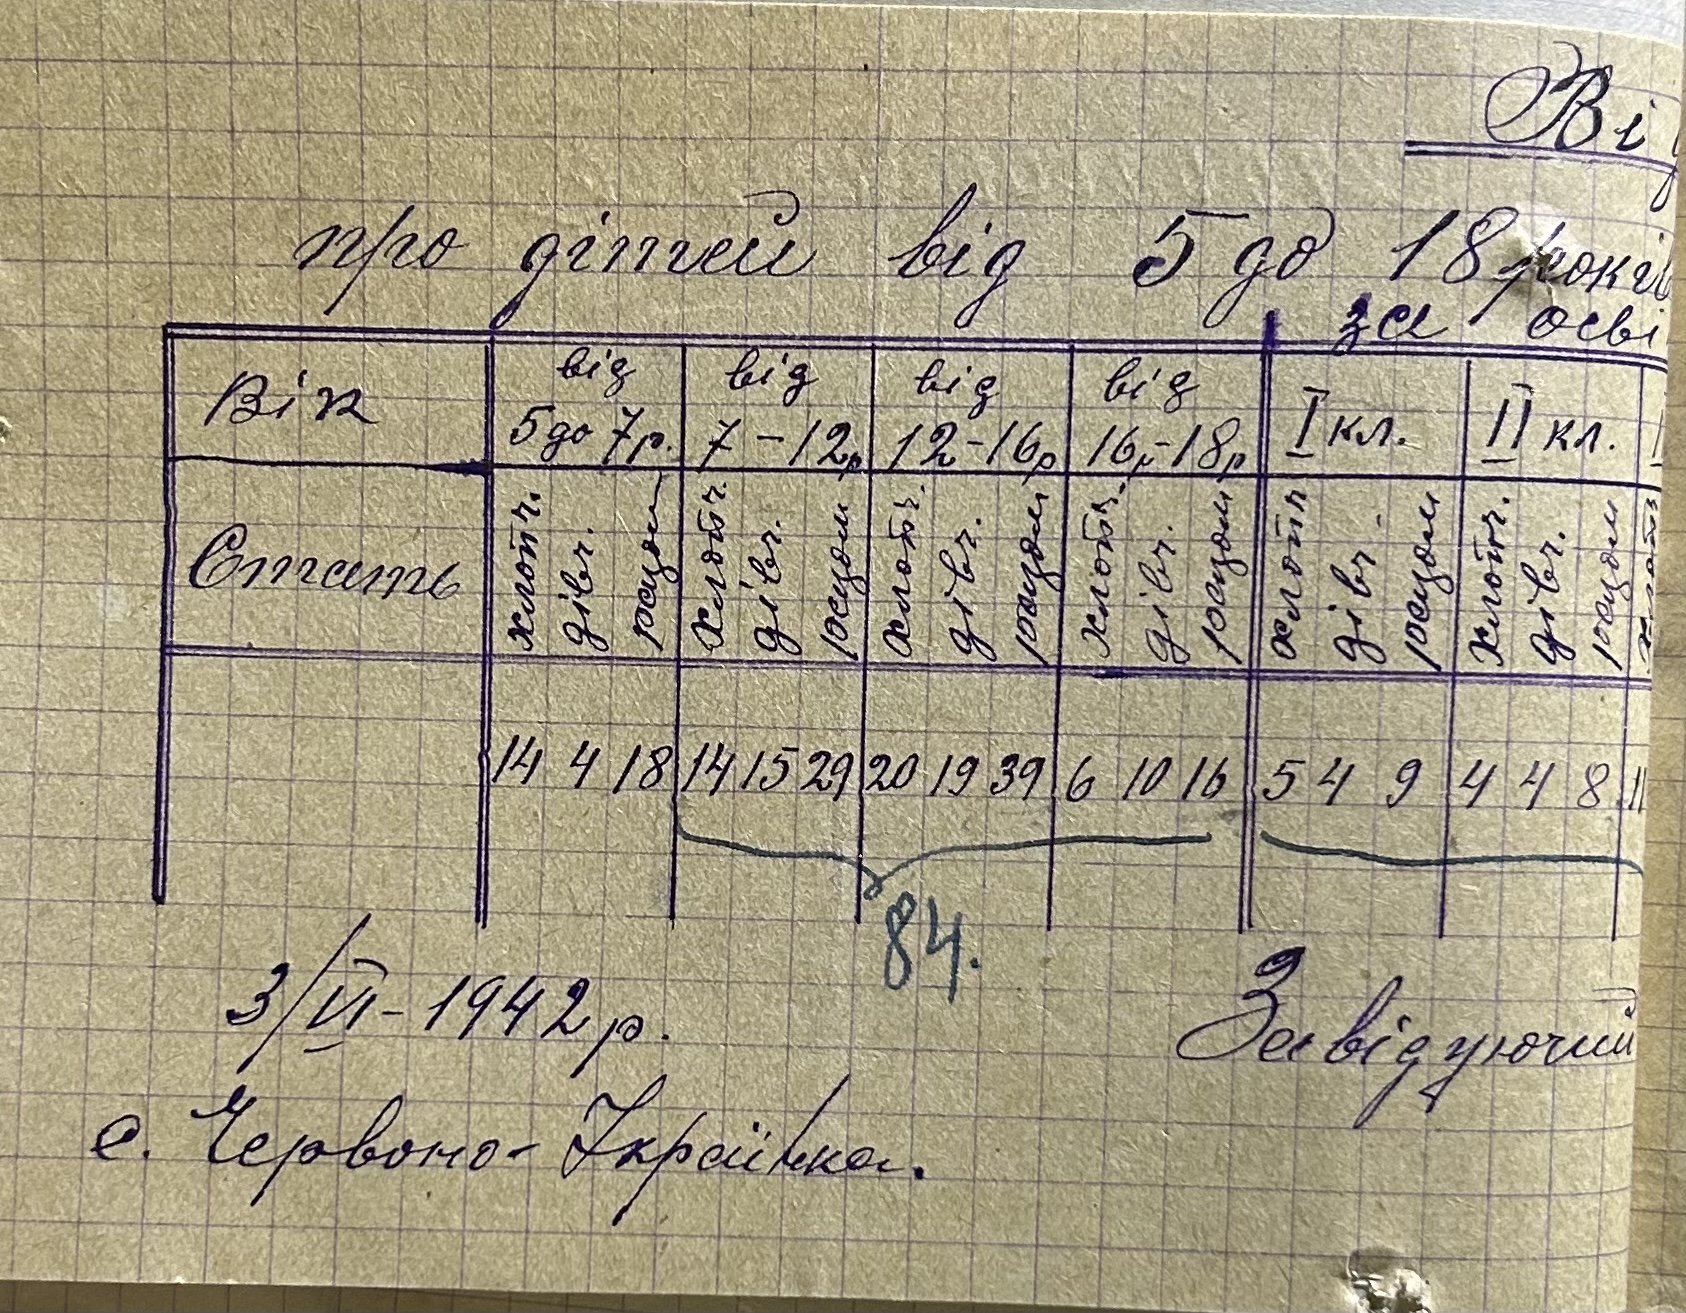 Ві
про дітей від 5 до 18 років
за осві
Вік від 5 до 7р. від 7 – 12р від 12 – 16р від 16р – 18р І кл. ІІ кл.
Стать хлопч. дівч. разом хлопч. дівч. разом хлопч. дівч. разом хлопч. дівч. разом хлопч дівч. разом хлопч. дівч. разом хлопч
14 4 18 14 15 29 20 19 39 6 10 16 5 4 9 4 4 8 11
84.
3/VI – 1942 р.
Завідуючий
с. Червоно-Українка.